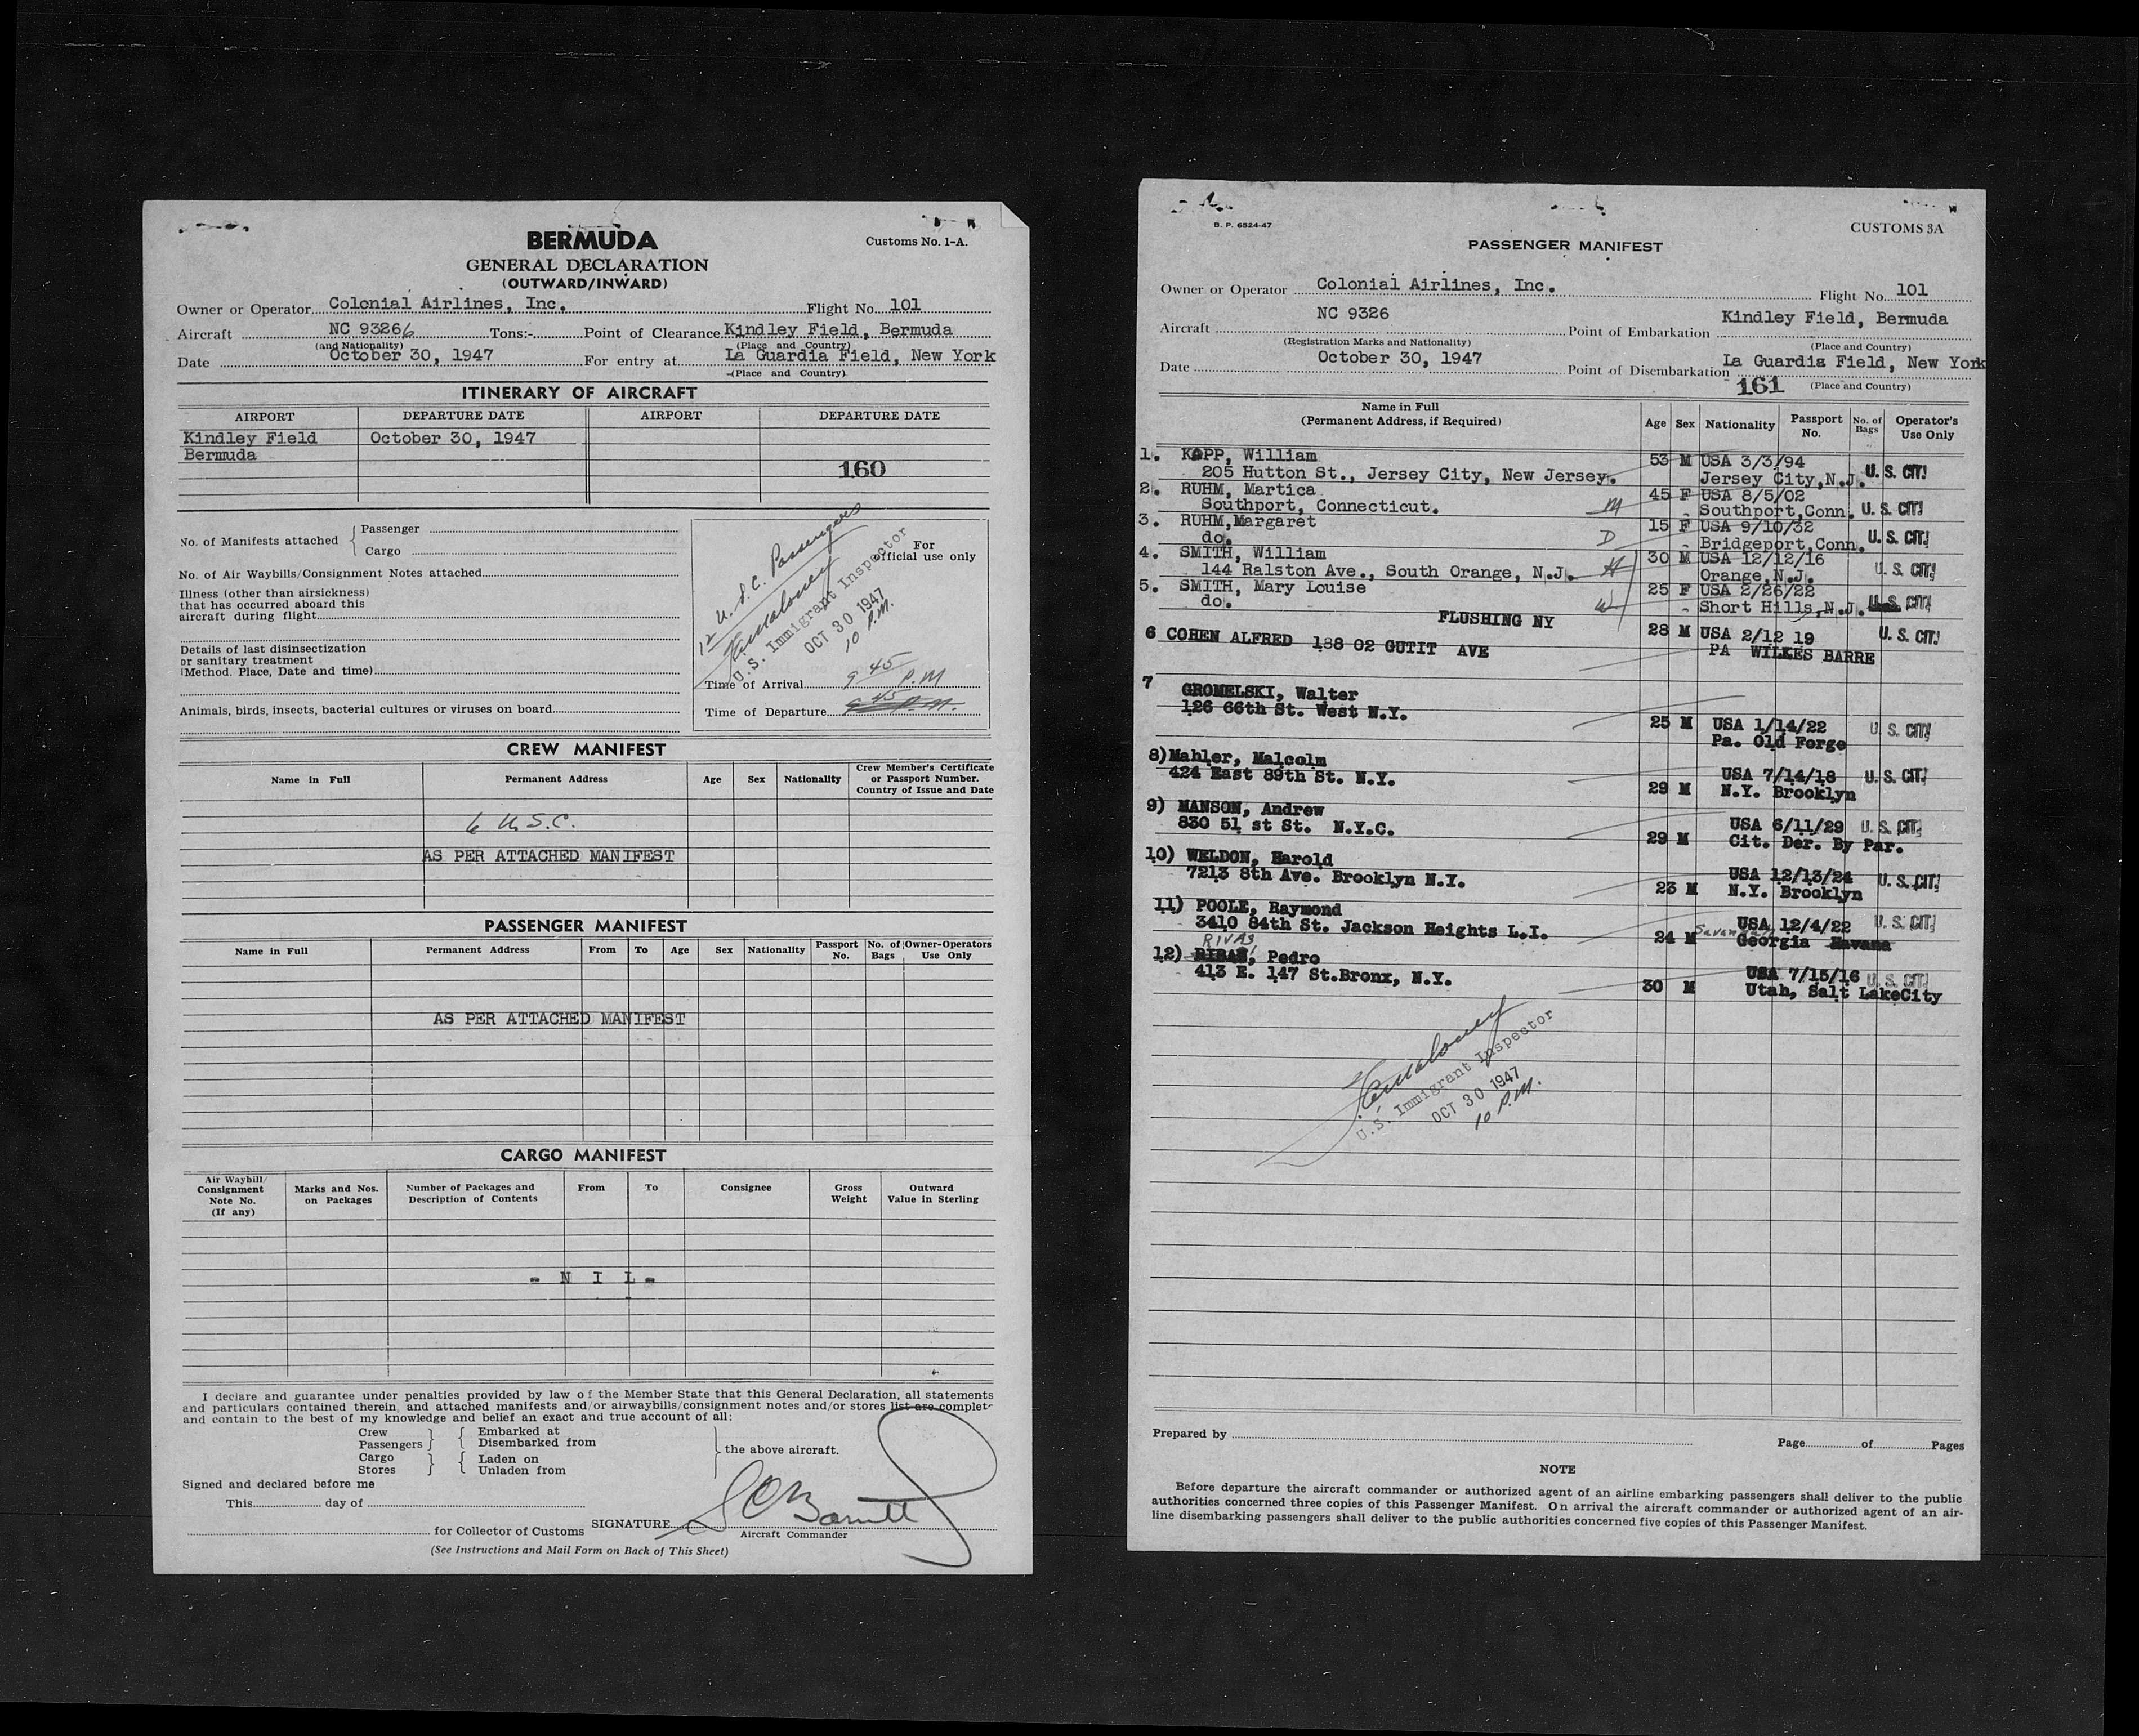 BERMUDA
Customs No. 1-A.
GENERAL DECLARATION
(OUTWARD/INWARD)
Owner or Operator Colonial Airlines, Inc. Flight No. 101
Aircraft NC 93266 Tons:- Point of Clearance Kindley Field, Bermuda
(and Nationality) (Place and Country)
Date October 30, 1947 For entry at La Guardia Field, New York
(Place and Country)
ITINERARY OF AIRCRAFT
AIRPORT DEPARTURE DATE AIRPORT DEPARTURE DATE
Kindley Field October 30, 1947
Bermuda
160
No. of Manifests attached { Passenger
Cargo
No. of Air Waybills/Consignment Notes attached
Illness (other than airsickness)
that has occurred aboard this
aircraft during flight
Details of last disinsectization
or sanitary treatment
(Method. Place, Date and time)
Animals, birds, insects, bacterial cultures or viruses on board
For
official use only
12 U.S.C. Passengers
U.S. Immigrant Inspector
OCT 30 1947
10 P.M.
Time of Arrival 9 45 P.M
Time of Departure 9 45 P.M.
CREW MANIFEST
Name in Full Permanent Address Age Sex Nationality Crew Member's Certificate
or Passport Number.
Country of Issue and Date
6 U.S.C.
AS PER ATTACHED MANIFEST
PASSENGER MANIFEST
Name in Full Permanent Address From To Age Sex Nationality Passport No. No. of Bags Owner-Operators Use Only
AS PER ATTACHED MANIFEST
CARGO MANIFEST
Air Waybill/
Consignment
Note No.
(If any)
Marks and Nos.
on Packages
Number of Packages and
Description of Contents
From To Consignee
Gross
Weight
Outward
Value in Sterling
- N I L -
I declare and guarantee under penalties provided by law of the Member State that this General Declaration, all statements
and particulars contained therein, and attached manifests and/or airwaybills/consignment notes and/or stores list are complet-
and contain to the best of my knowledge and belief an exact and true account of all:
Crew
Passengers } { Embarked at
Disembarked from
Cargo
Stores } { Laden on
Unladen from
} the above aircraft.
Signed and declared before me
This day of
for Collector of Customs SIGNATURE
Aircraft Commander
(See Instructions and Mail Form on Back of This Sheet)
B. P. 6524-47
CUSTOMS 3A
PASSENGER MANIFEST
Owner or Operator Colonial Airlines, Inc. Flight No. 101
Aircraft NC 9326 Point of Embarkation Kindley Field, Bermuda
(Registration Marks and Nationality) (Place and Country)
Date October 30, 1947 Point of Disembarkation La Guardia Field, New York
161 (Place and Country)
Name in Full
(Permanent Address, if Required)
Age Sex Nationality Passport No. No. of Bags Operator's Use Only
1. KAPP, William 53 M USA 3/3/94
205 Hutton St., Jersey City, New Jersey. Jersey City, N.J. U. S. CIT.
2. RUHM, Martica 45 F USA 8/5/02
Southport, Connecticut. M Southport, Conn. U. S. CIT.
3. RUHM, Margaret 15 F USA 9/10/32
do. D Bridgeport, Conn. U. S. CIT.
4. SMITH, William 30 M USA 12/12/16
144 Ralston Ave., South Orange, N.J. H Orange, N.J. U. S. CIT.
5. SMITH, Mary Louise 25 F USA 2/26/22
do. W Short Hills, N.J. U. S. CIT.
FLUSHING NY
6 COHEN ALFRED 188 02 GUTIT AVE 28 M USA 2/12 19 U. S. CIT.
PA WILKES BARRE
7 GROMELSKI, Walter
126 66th St. West N.Y. 25 M USA 1/14/22 U. S. CIT.
Pa. Old Forge
8) Mahler, Malcolm USA 7/14/18 U. S. CIT.
424 East 89th St. N.Y. 29 M N.Y. Brooklyn
9) MANSON, Andrew USA 6/11/29 U. S. CIT.
830 51 st St. N.Y.C. 29 M Cit. Der. By Par.
10) WELDON, Harold USA 12/13/24 U. S. CIT.
7213 8th Ave. Brooklyn N.Y. 23 M N.Y. Brooklyn
11) POOLE, Raymond USA 12/4/22 U. S. CIT.
3410 84th St. Jackson Heights L.I. 24 M Savannah Georgia Havana
RIVAS
12) Pedro USA 7/15/16 U. S. CIT.
413 E. 147 St. Bronx, N.Y. 30 M Utah, Salt LakeCity
U.S. Immigrant Inspector
OCT 30 1947
10 P.M.
Prepared by
Page of Pages
NOTE
Before departure the aircraft commander or authorized agent of an airline embarking passengers shall deliver to the public
authorities concerned three copies of this Passenger Manifest. On arrival the aircraft commander or authorized agent of an air-
line disembarking passengers shall deliver to the public authorities concerned five copies of this Passenger Manifest.